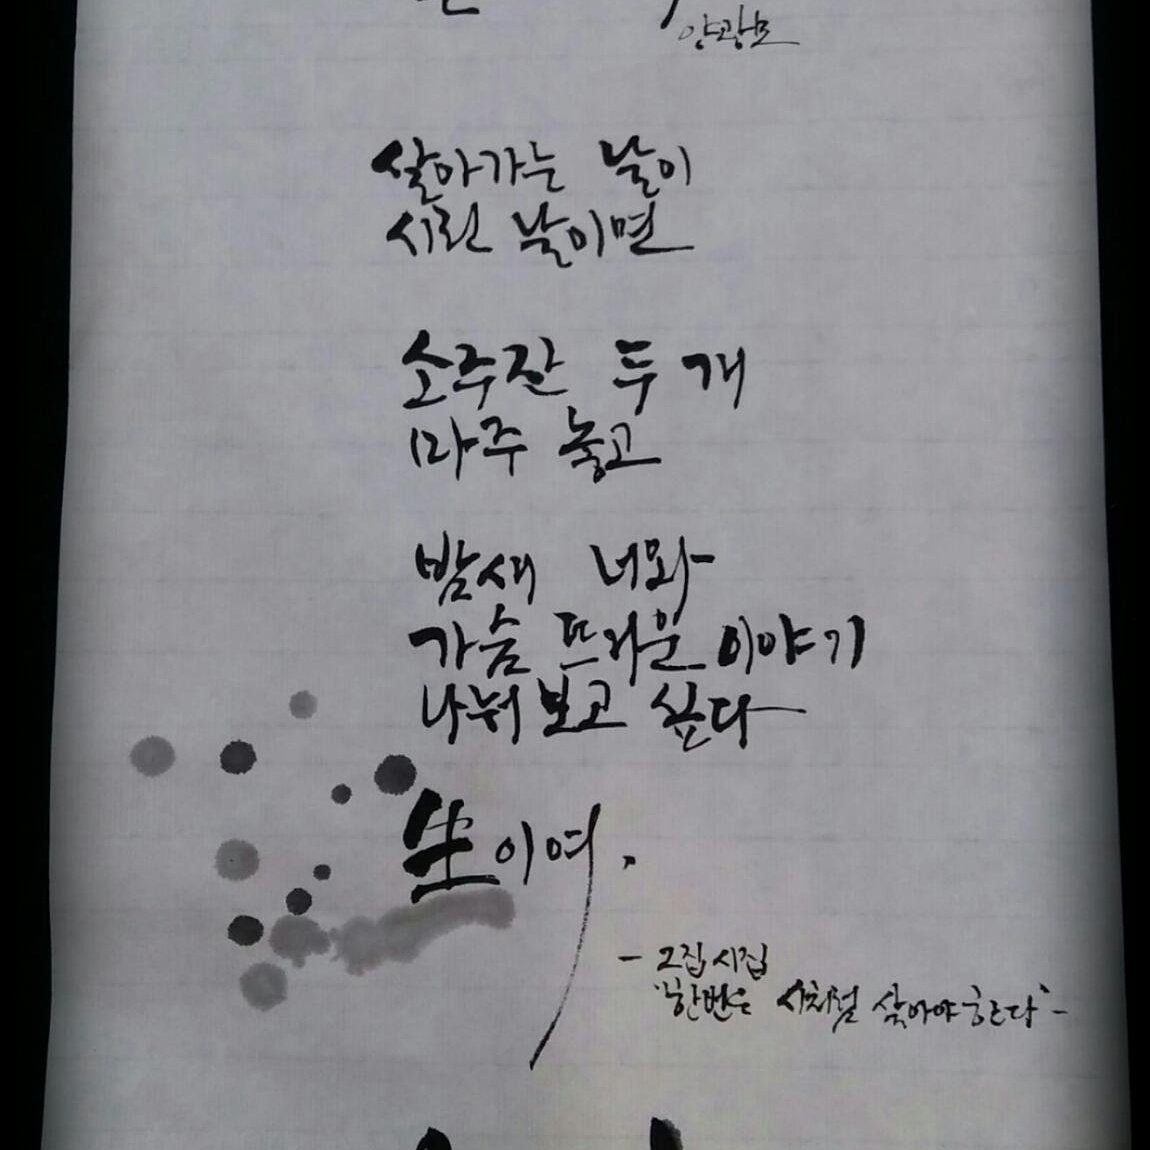 양광모
살아가는 날이
시린 날이면
소주잔 두 개
마주 놓고
밤새 너와
가슴 뜨거운 이야기
나눠 보고 싶다
生이여.
- 2집 시집
'한번은 시처럼 살아야한다' -